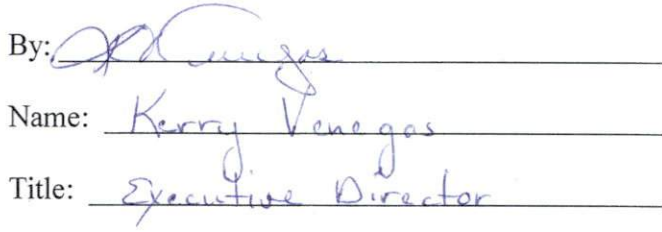 By:
Name: Kerry Venegas
Title: Executive Director